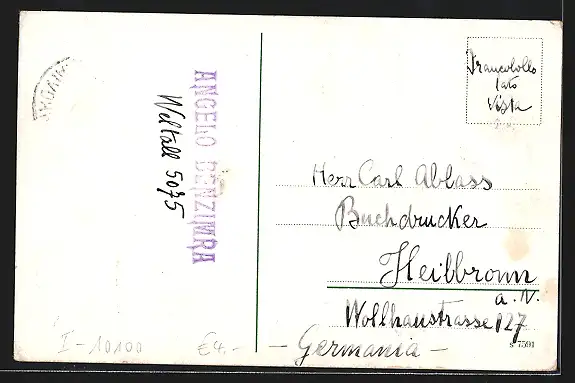 ANGELO BENZIMRA
Weltall 5075
Francobollo
lato
vista
Herr Carl Ablass
Buchdrucker
Heilbronn
a. N.
Wollhausstrasse 127
- Germania -
s 7591
I-10100
€4.-